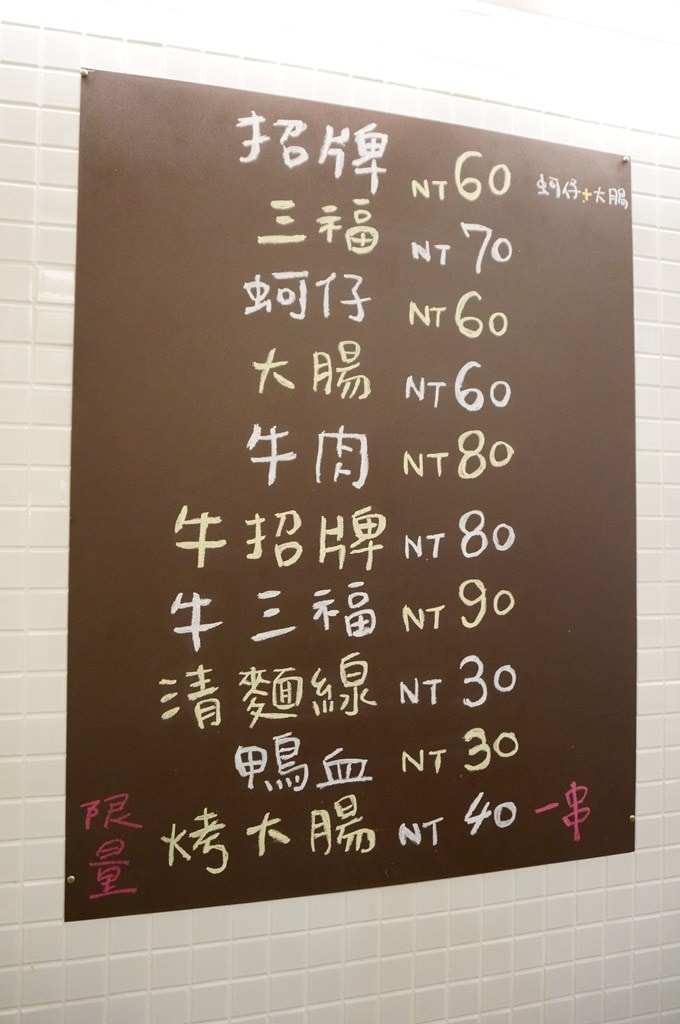 招牌 NT60 蚵仔+大腸
三福 NT70
蚵仔 NT60
大腸 NT60
牛肉 NT80
牛招牌 NT80
牛三福 NT90
清麵線 NT30
鴨血 NT30
限量 烤大腸 NT40 一串